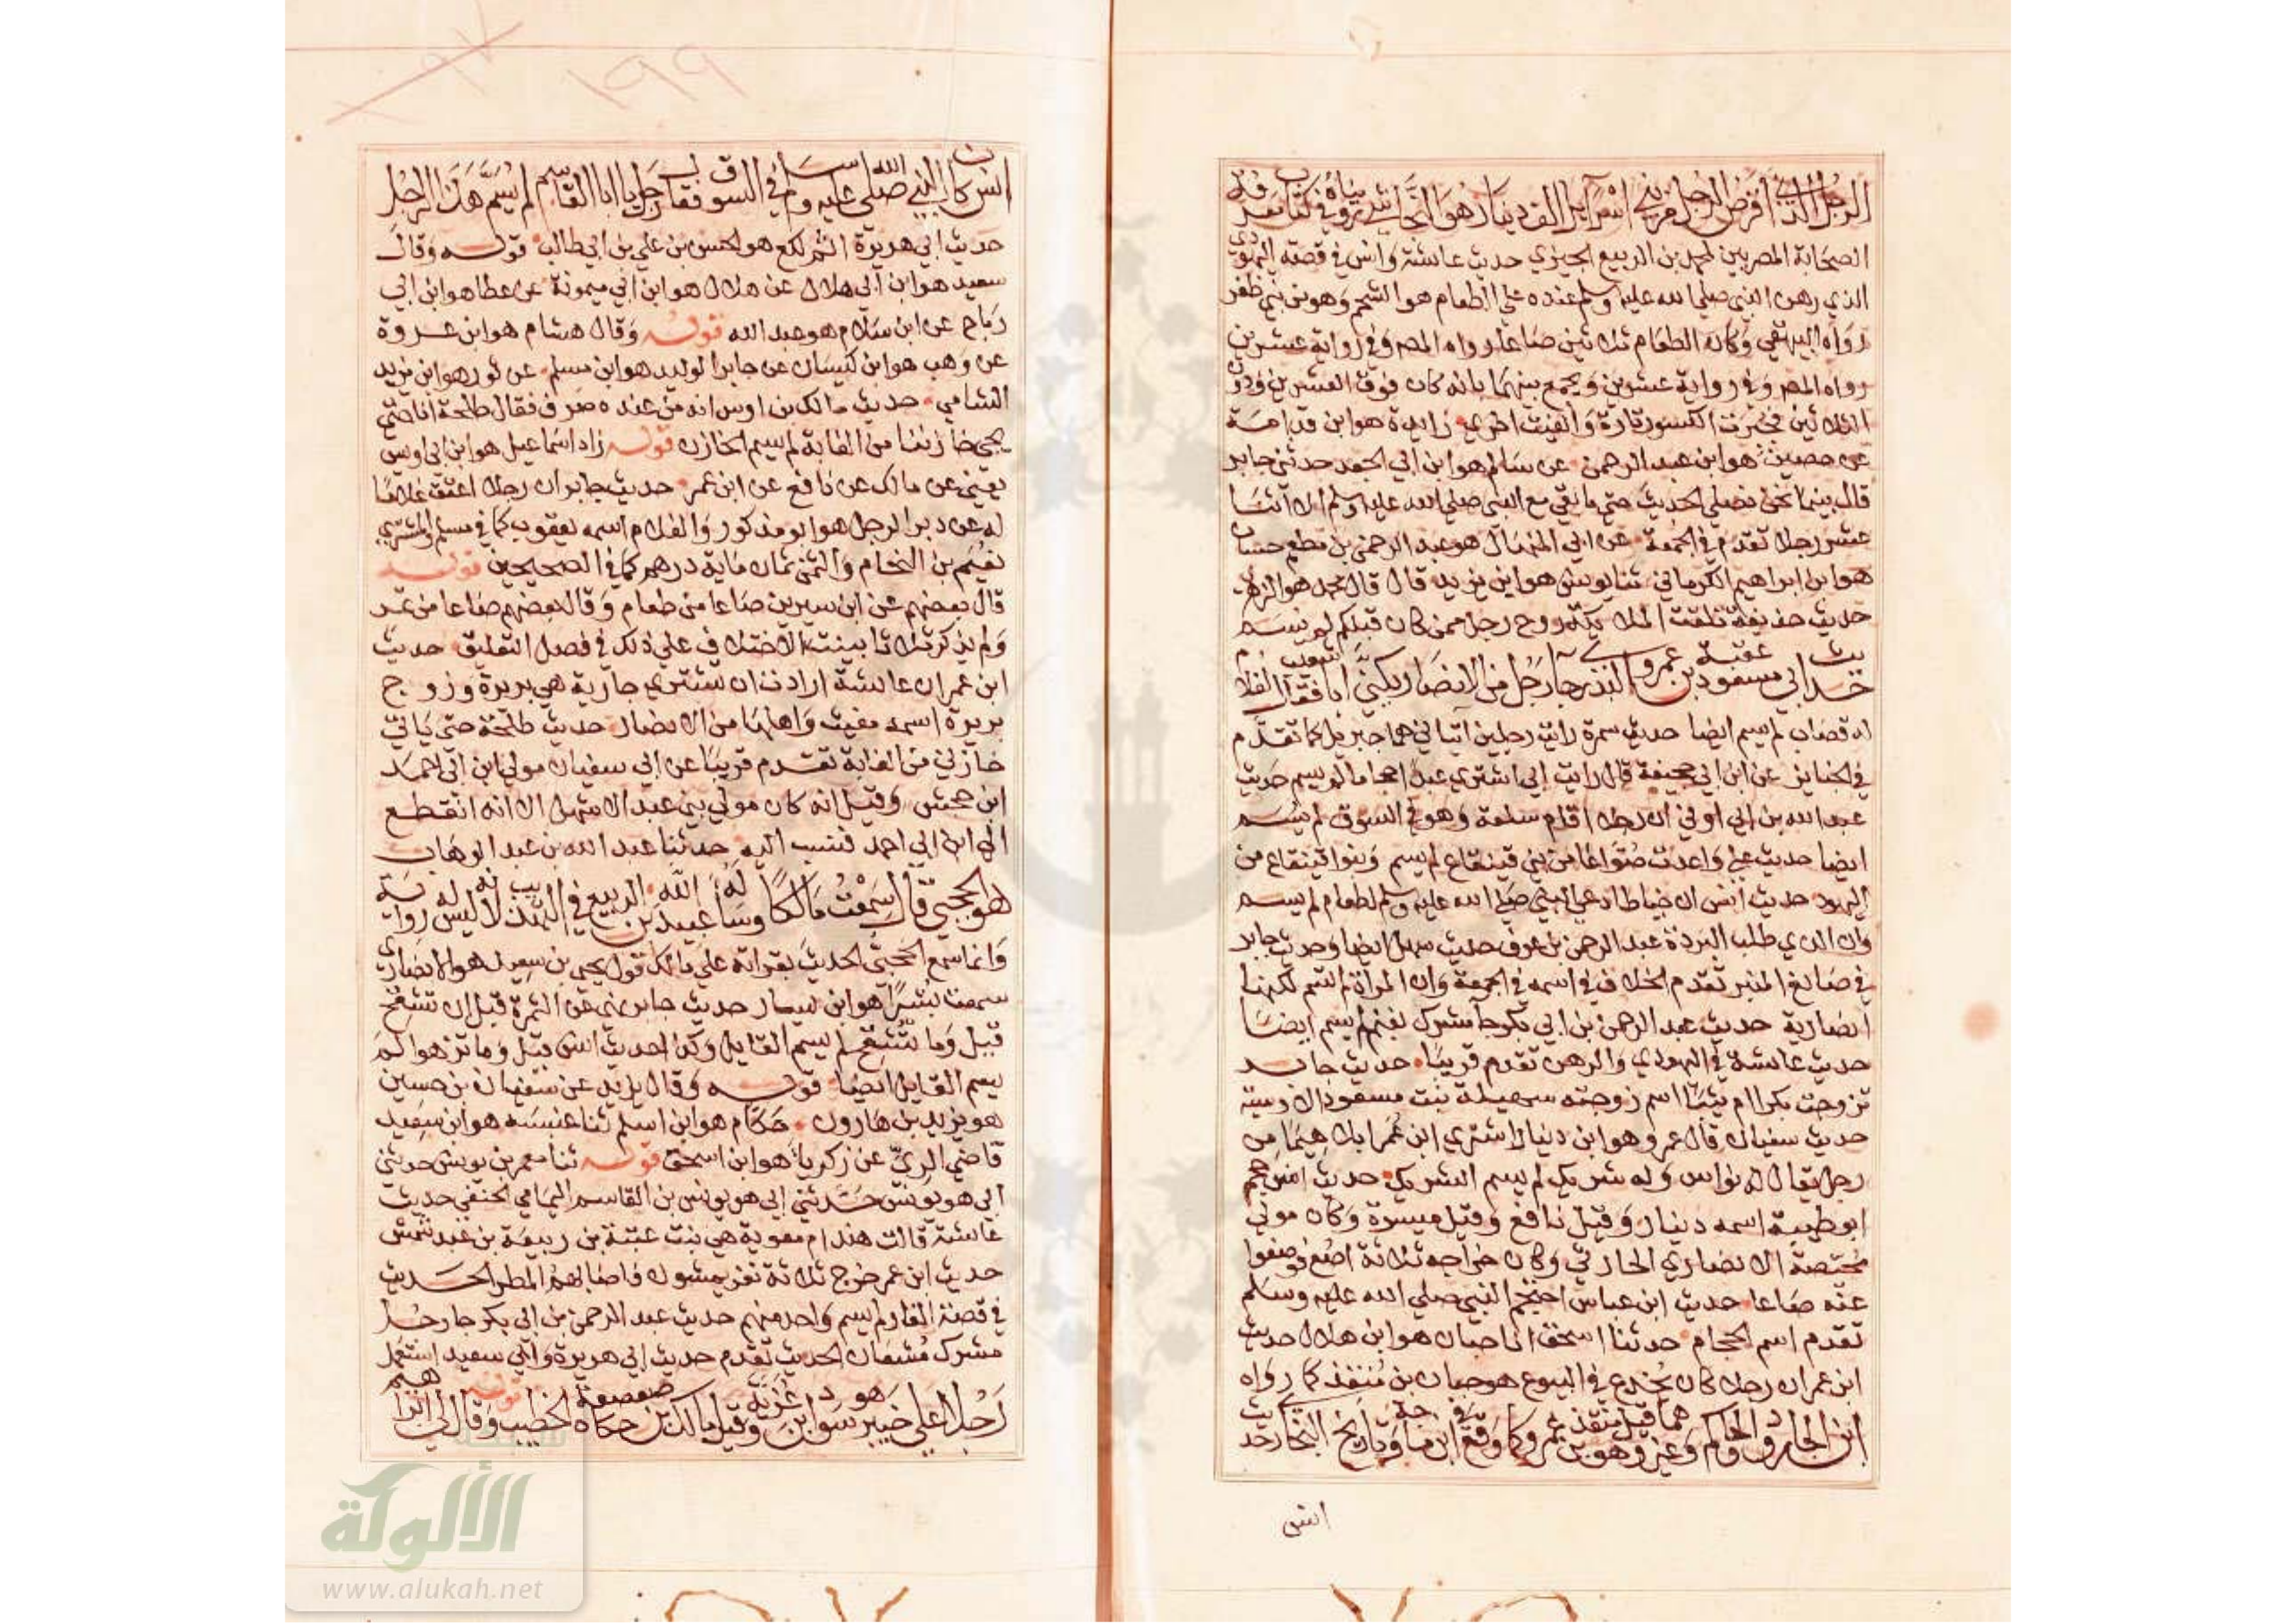 الرجل الذي اقرض الرجل من بني اسرآييل الف دينار هو النجاشي رويناه في كتاب معرفة
الصحابة المصريين لمحمد بن الربيع الجيزي حديث عائشة وانس في قصة اليهودي
الذي رهن النبي صلي الله عليه وسلم عنده علي الطعام هو ابو الشحم وهو من بني ظفر
رواه البيهقي وكان الطعام ثلاثين صاعا رواه المصـ وفي رواية عشرين
رواه المصـ وفي رواية عشرين ويجمع بينهما بانه كان فوق العشرين ودون
الثلاثين فجبرت الكسور تارة والغيت اخري زايدة هو ابن قدامة
عن حصين هو ابن عبد الرحمن عن سالم هو ابن ابي الجعد حدثني جابر
قال بينما نحن نصلي الحديث حتي ما بقي مع النبي صلي الله عليه وسلم الا اثنا
عشر رجلا تقدم في الجمعة عن ابي المنهال هو عبد الرحمن بن مطعم حسان
هو ابن ابراهيم الكرماني ثنا يونس هو ابن يزيد قال قال محمد هو الزهـ
حديث حذيفة تلقت الملايكة روح رجل ممن كان قبلكم لم يسم
حديث ابي مسعود عقبة بن عمرو البدري جا رجل من الانصار يكني ابا شعيب فقال لغلام
له قصاب لم يسم ايضا حديث سمرة رايت رجلين اتياني هما جبريل كما تقدم
في الجنايز عن ابن ابي جحيفة قال رايت ابي اشتري عبدا حجاما لم يسم حديث
عبد الله بن ابي اوفي ان رجلا اقام سلعة وهو في السوق لم يسم
ايضا حديث علي واعدت صواغا من بني قينقاع لم يسم وبنوا قينقاع من
اليهود حديث انس ان خياطا دعي النبي صلي الله عليه وسلم لطعام لم يسم
وان الذي طلب البردة عبد الرحمن بن عوف حديث سهل ايضا وحديث جابر
في صانع المنبر تقدم الخلاف في اسمه في الجمعة وان المراة لم تسم لكنها
انصارية حديث عبد الرحمن بن ابي بكر جا مشرك بغنم لم يسم ايضا
حديث عائشة في اليهودي والرهن تقدم قريبا حديث جابر
تزوجت بكرا ام ثيبا اسم زوجته سهيلة بنت مسعود الاوسية
حديث سفيان قال عمرو هو ابن دينار اشتري ابن عمر ابلا هيما من
رجل يقال له نواس وله شريك لم يسم الشريك حديث انس حجم
ابو طيبة اسمه دينار وقيل نافع وقيل ميسرة وكان مولي
محيصة الانصاري الحارثي وكان خراجه ثلاثة اصع فوضعوا
عنه صاعا حديث ابن عباس احتجم النبي صلي الله عليه وسلم
تقدم اسم الحجام حدثنا اسحق انا حبان هو ابن هلال حديث
ابن عمران رجلا كان يخدع في البيوع هو حبان بن منقذ كما رواه
ابن الجارود والحاكم وغيرهما وقيل منقذ بن عمرو كما وقع في ابن ماجة وتاريخ البخاري حديث
انس
١٩٩
انس كان النبي صلي الله عليه وسلم في السوق فقال رجل يا ابا القاسم لم يسم هذا الرجل
حديث ابي هريرة اثم لكع هو الحسن بن علي بن ابي طالب قوله وقال
سعيد هو ابن ابي هلال عن هلال هو ابن ابي ميمونة عن عطا هو ابن ابي
رباح عن ابن سلام هو عبد الله قوله وقال هشام هو ابن عروة
عن وهب هو ابن كيسان عن جابر الوليد هو ابن مسلم عن ثور هو ابن يزيد
الشامي حديث مالك بن اوس انه من عنده صرف فقال طلحة انا حتي
يجي خازننا من الغابة لم يسم الخازن قوله زاد اسماعيل هو ابن ابي اويس
يعني عن مالك عن نافع عن ابن عمر حديث جابر ان رجلا اعتق غلاما
له عن دبر الرجل هو ابو مذكور والغلام اسمه يعقوب كما في مسلم والمشتري
نعيم بن النحام والثمن ثمان ماية درهم كما في الصحيحين قوله
قال بعضهم عن ابن سيرين صاعا من طعام وقال بعضهم صاعا من تمر
ولم يذكر ثلاثا بينت الاختلاف علي ذلك في فصل التعليق حديث
ابن عمر ان عائشة ارادت ان تشتري جارية هي بريرة وزوج
بريرة اسمه مغيث واهلها من الانصار حديث طلحة حتي ياتي
خازني من الغابة تقدم قريبا عن ابي سفيان مولي ابن ابي احمد
ابن جحش وقيل انه كان مولي بني عبد الاشهل الا انه انقطع
الي ابن ابي احمد فنسب اليه حدثنا عبد الله بن عبد الوهاب
هو الحجبي قال سمعت مالكا وساله عبيد الله بن الربيع في التهذيب لانه ليس له رواية
وانما سمع الحجبي الحديث بقراته علي مالك قول يحيي بن سعيد هو الانصاري
سمعت بشيرا هو ابن يسار حديث جابر نهي عن الثمرة قبل ان تشقح
قيل وما تشقح لم يسم القايل وكذا لحديث انس قيل وما تزهوا لم
يسم القايل ايضا قوله وقال يزيد عن سفيان بن حسين
هو يزيد بن هارون حكام هو ابن اسلم ثنا عنبسة هو ابن سعيد
قاضي الري عن زكريا هو ابن اسحق قوله ثنا معمر بن يونس حدثني
ابي هو يونس حدثني ابي هو يونس بن القاسم اليمامي الحنفي حديث
عائشة قالت هند ام معوية هي بنت عتبة بن ربيعة بن عبد شمس
حديث ابن عمر خرج ثلاثة نفر يمشون فاصابهم المطر الحديث
في قصة الغار لم يسم واحد منهم حديث عبد الرحمن بن ابي بكر جا رجل
مشرك مشعان الحديث تقدم حديث ابي هريرة وابي سعيد استعمل
رجلا علي خيبر هو سواد بن غزية وقيل مالك بن صعصعة حكاه الخطيب قوله وقال لي ابرا
هيم
الألوكة
www.alukah.net